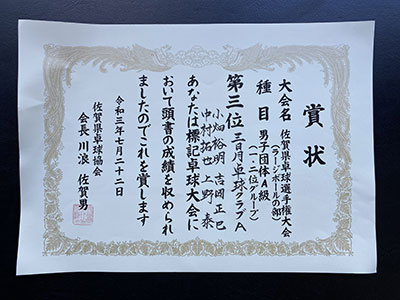 賞状
大会名 佐賀県卓球選手権大会
(ラージボールの部)
種目 男子団体A級
(一・二位グループ)
第三位 三日月卓球クラブA
小畑裕明 吉岡正巳
中村拓也 上野泰
あなたは標記卓球大会に
おいて頭書の成績を収められ
ましたのでこれを賞します
令和三年七月二十二日
佐賀県卓球協会
会長 川浪佐賀男